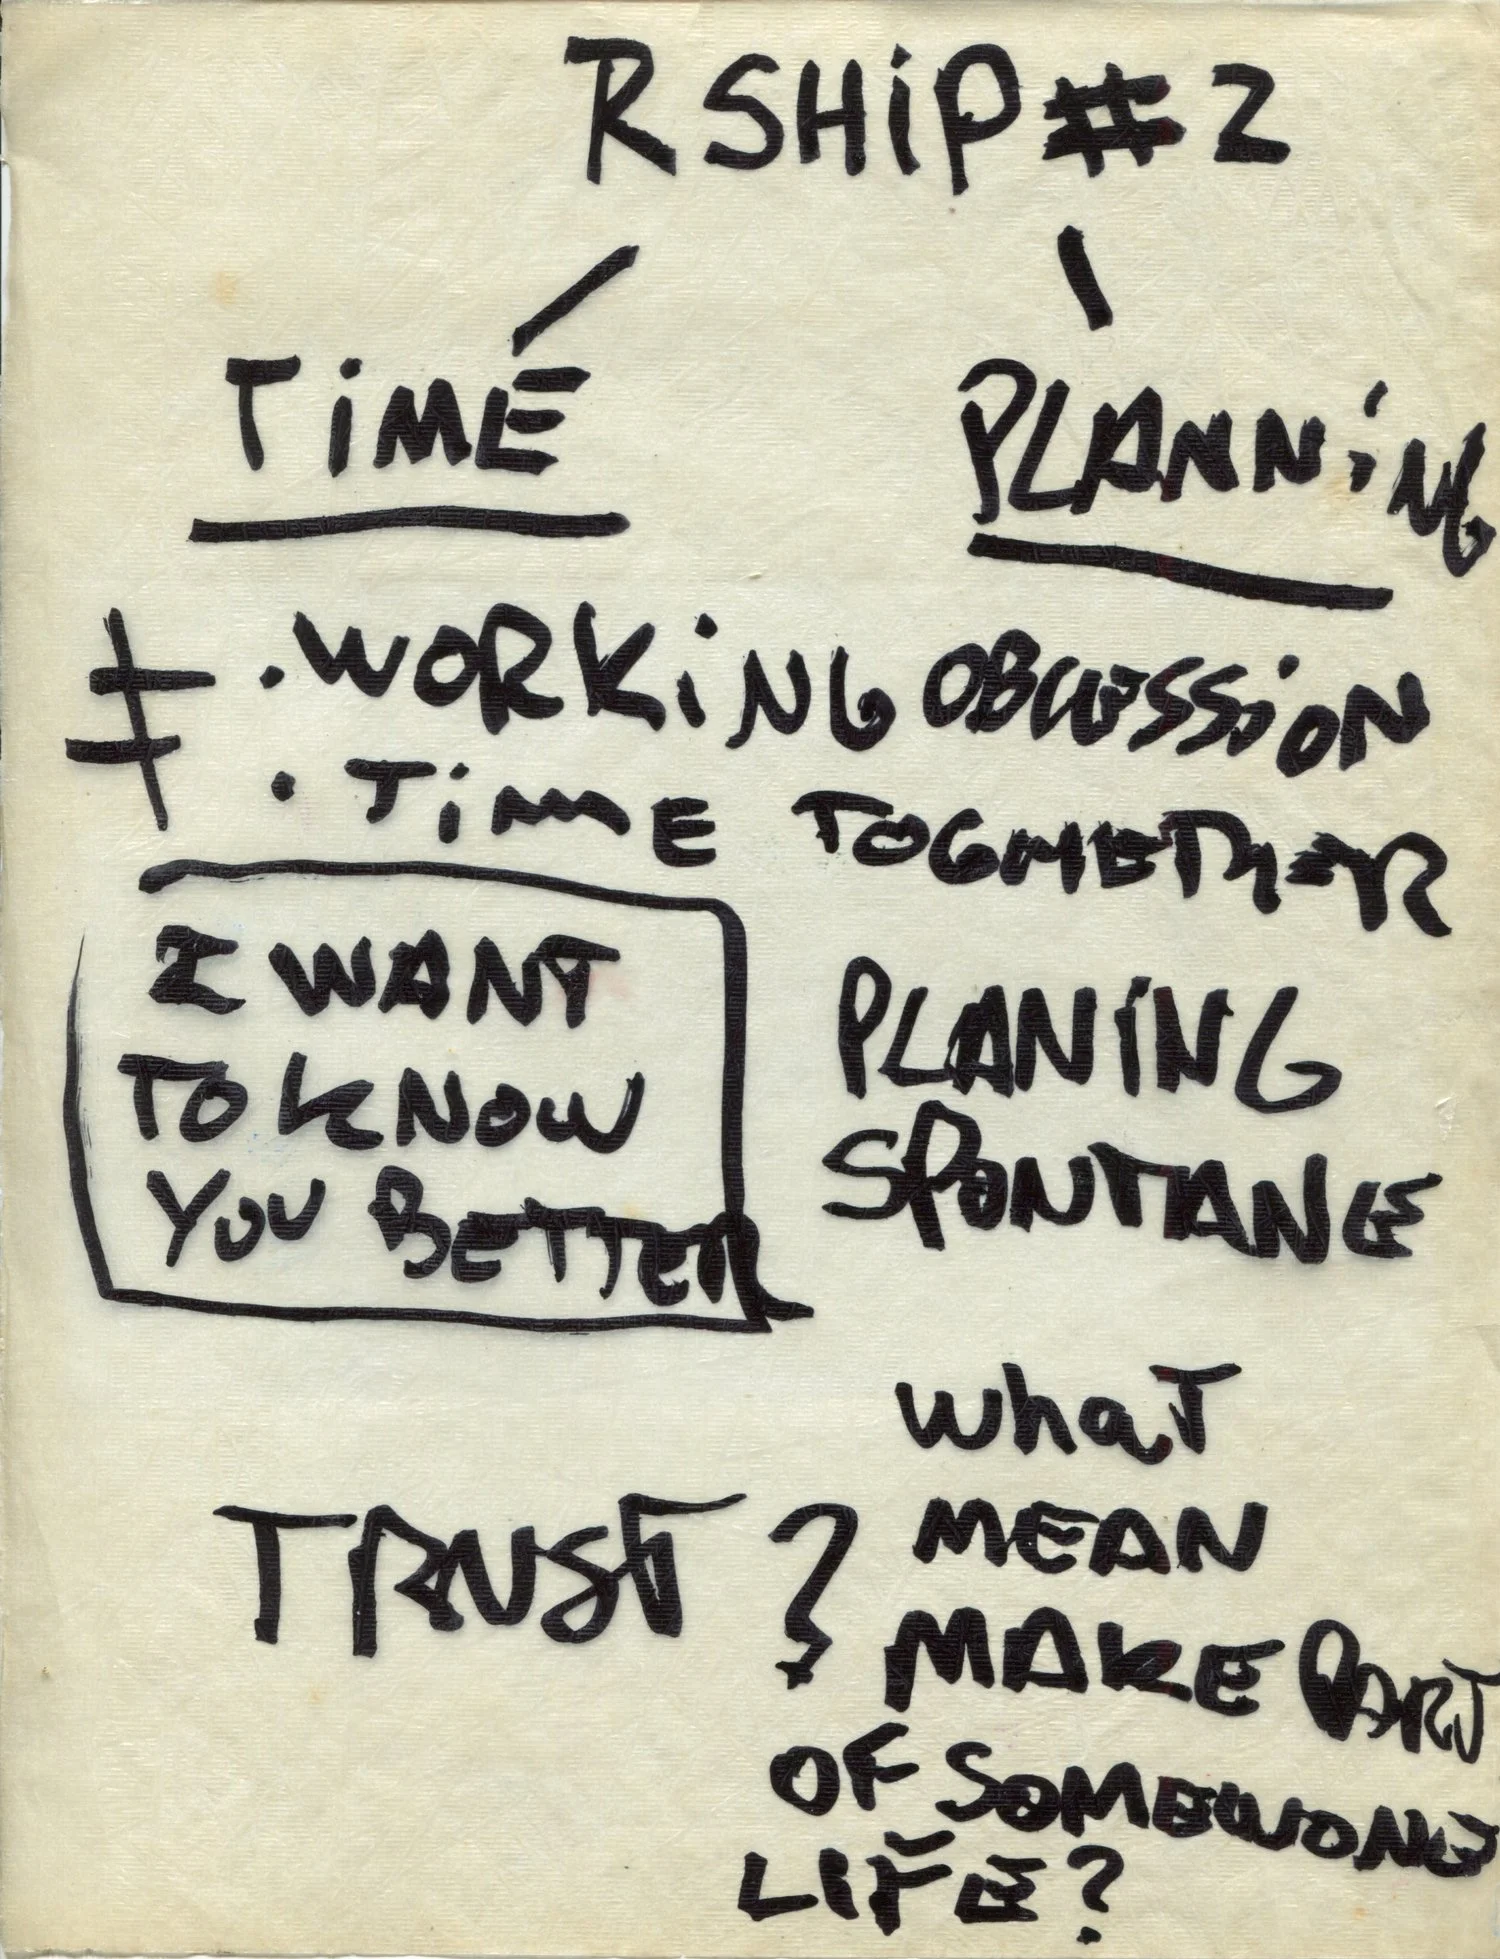 RSHiP # 2
TiME PLANNiNG
‡ • WORKiNG OBCESSiON
• TiME TOGHETHER
I WANT
TO KNOW
YOU BETTER
PLANING
SPONTANE
TRUST ?
whaT
MEAN
MAKE PART
OF SOMEWONE
LIFE?